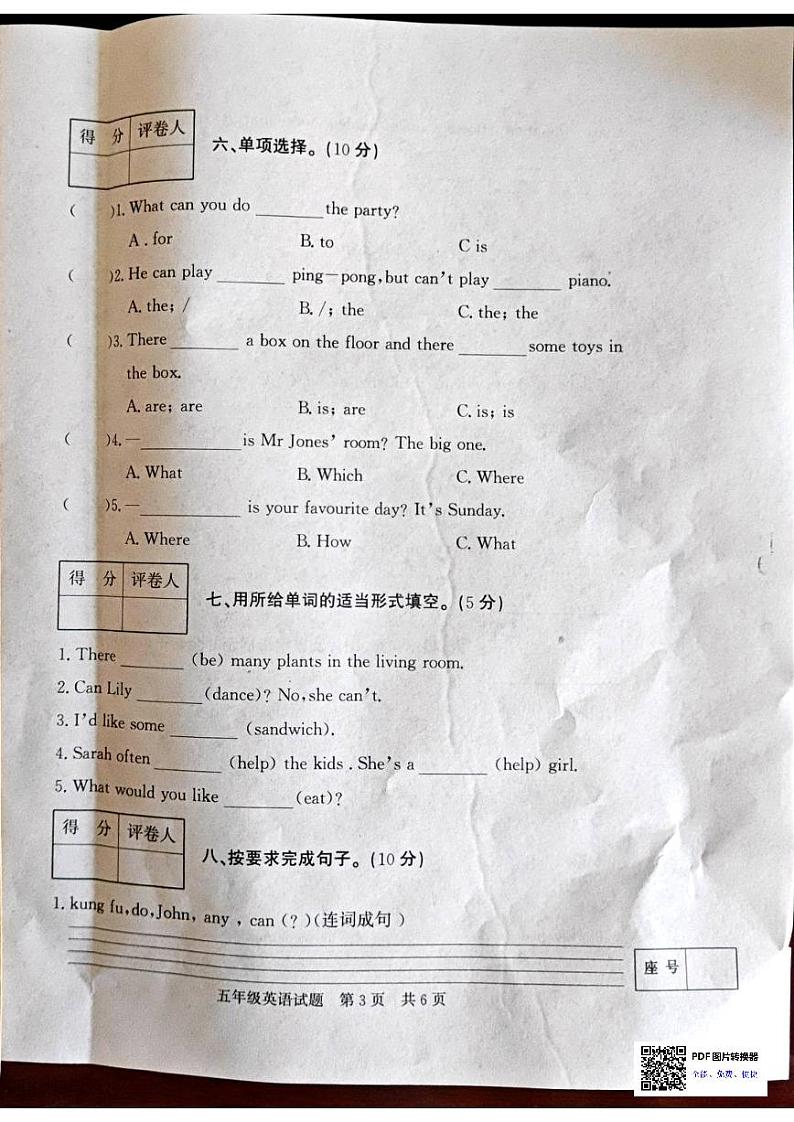 得 分 评卷人
六、单项选择。(10分)
( )1. What can you do ________ the party?
A . for B. to C is
( )2. He can play ________ ping－pong,but can't play ________ piano.
A. the; / B. /; the C. the; the
( )3. There ________ a box on the floor and there ________ some toys in
the box.
A. are; are B. is; are C. is; is
( )4. —____________ is Mr Jones' room? The big one.
A. What B. Which C. Where
( )5. —____________ is your favourite day? It's Sunday.
A. Where B. How C. What
得 分 评卷人
七、用所给单词的适当形式填空。(5分)
1. There ________ (be) many plants in the living room.
2. Can Lily ________ (dance)? No,she can't.
3. I'd like some ________ (sandwich).
4. Sarah often ________ (help) the kids . She's a ________ (help) girl.
5. What would you like ________ (eat)?
得 分 评卷人
八、按要求完成句子。(10分)
1. kung fu,do,John, any , can (?)(连词成句)
座 号
五年级英语试题 第3页 共6页
PDF图片转换器
全能、免费、便捷